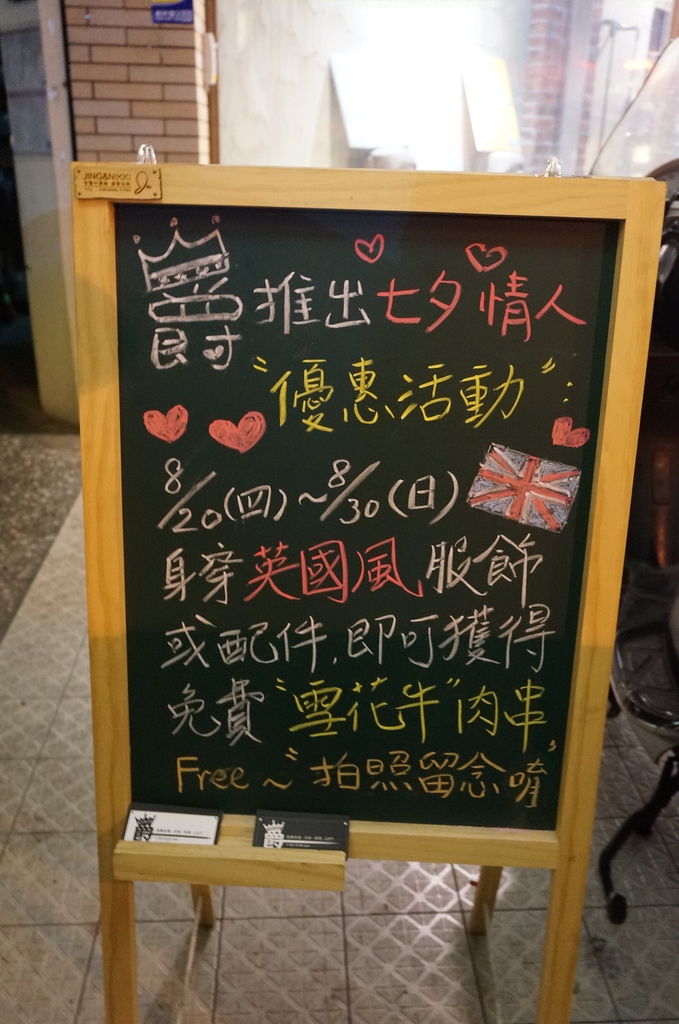 JING&NIKKI
爵 推出七夕情人
"優惠活動":
8/20(四)~8/30(日)
身穿英國風服飾
或配件,即可獲得
免費"雪花牛"肉串
Free~"拍照留念唷"
爵
爵